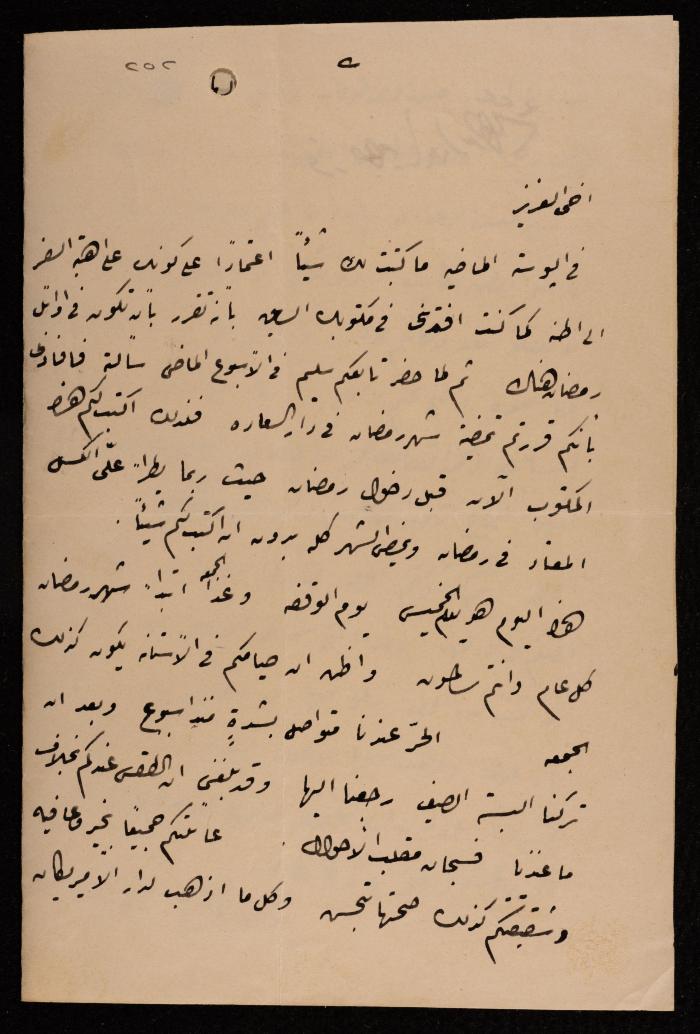 ٢٥٢
اخي العزيز
في البوسته الماضيه ما كتبت لك شيئاً اعتماداً على كونك على اهبة السفر
الى الوطن كما كنت افدتني في مكتوبك السابق بأنه تقرر بأن تكون في اوائل
رمضان هناك ثم لما حضر تابعكم سليم في الأسبوع الماضي سألته فافادني
بأنكم قررتم تمضية شهر رمضان في دار السعاده فلذلك اكتب لكم هذا
المكتوب الآن قبل دخول رمضان حيث ربما يطرأ عليّ الكسل
المعتاد في رمضان ويمضي الشهر كله بدون ان اكتب لكم شيئاً .
هذا اليوم هو يوم الخميس يوم الوقفه وغداً الجمعه ابتداء شهر رمضان
كل عام وانتم سالمون واظن ان صيامكم في الأستانه يكون كذلك
الجمعه الحرّ عندنا متواصل بشدةٍ منذ اسبوع وبعد ان
تركنا البسة الصيف رجعنا اليها وقد بلغني ان الطقس عندكم بخلاف
ما عندنا فسبحان مقلب الأحوال . عائلتكم جميعاً بخير وعافيه
وشقيقتكم كذلك صحتها تتحسن وكل ما اذهب لدار الأمريكان